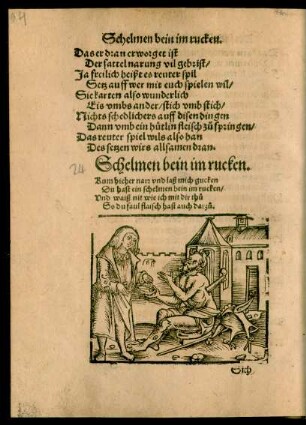 Schelmen bein im rucken.
Das er dran erworget ist
Der sattel narung vil gebrist/
Ja freilich heißt es reuter spil
Setz auff wer mit euch spielen wil/
Sie karten also wunderlich
Eis vmbs ander/stich vmb stich/
Nichts schedlichers auff disen dingen
Dann vmb ein hütlin fleisch zů springen/
Das reuter spil wils also han
Des setzen wirs allsamen dran.
Schelmen bein im rucken.
Kum hieher narr vnd laß mich gucken
Du hast ein schelmen bein im rucken/
Vnd waiß nit wie ich mit dir thů
So du faul flaisch hast auch darzů.
24
Sich